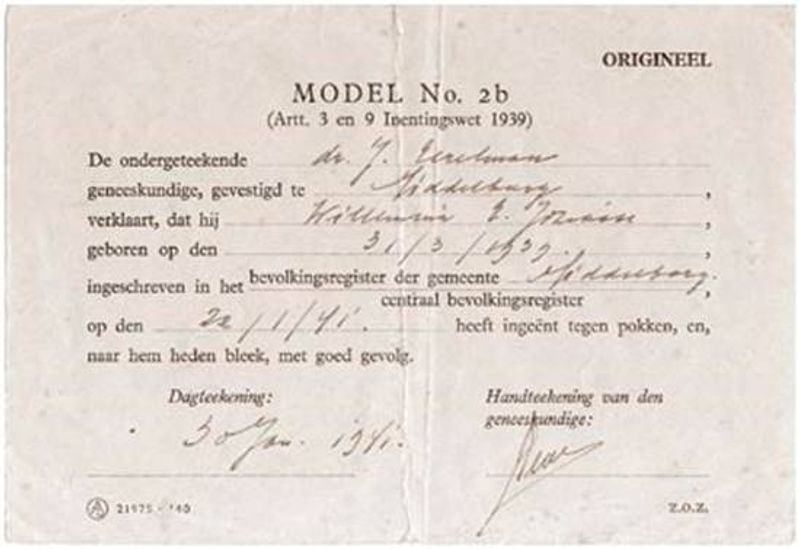 ORIGINEEL
MODEL No. 2b
(Artt. 3 en 9 Inentingswet 1939)
De ondergeteekende dr. J.
geneeskundige, gevestigd te Middelburg,
verklaart, dat hij E.
geboren op den 31/3/1939.,
ingeschreven in het bevolkingsregister der gemeente Middelburg.
centraal bevolkingsregister,
op den 22/1/41. heeft ingeënt tegen pokken, en,
naar hem heden bleek, met goed gevolg.
Dagteekening:
Handteekening van den
geneeskundige:
30 Jan. 1941.
A 21975 - '40
Z.O.Z.